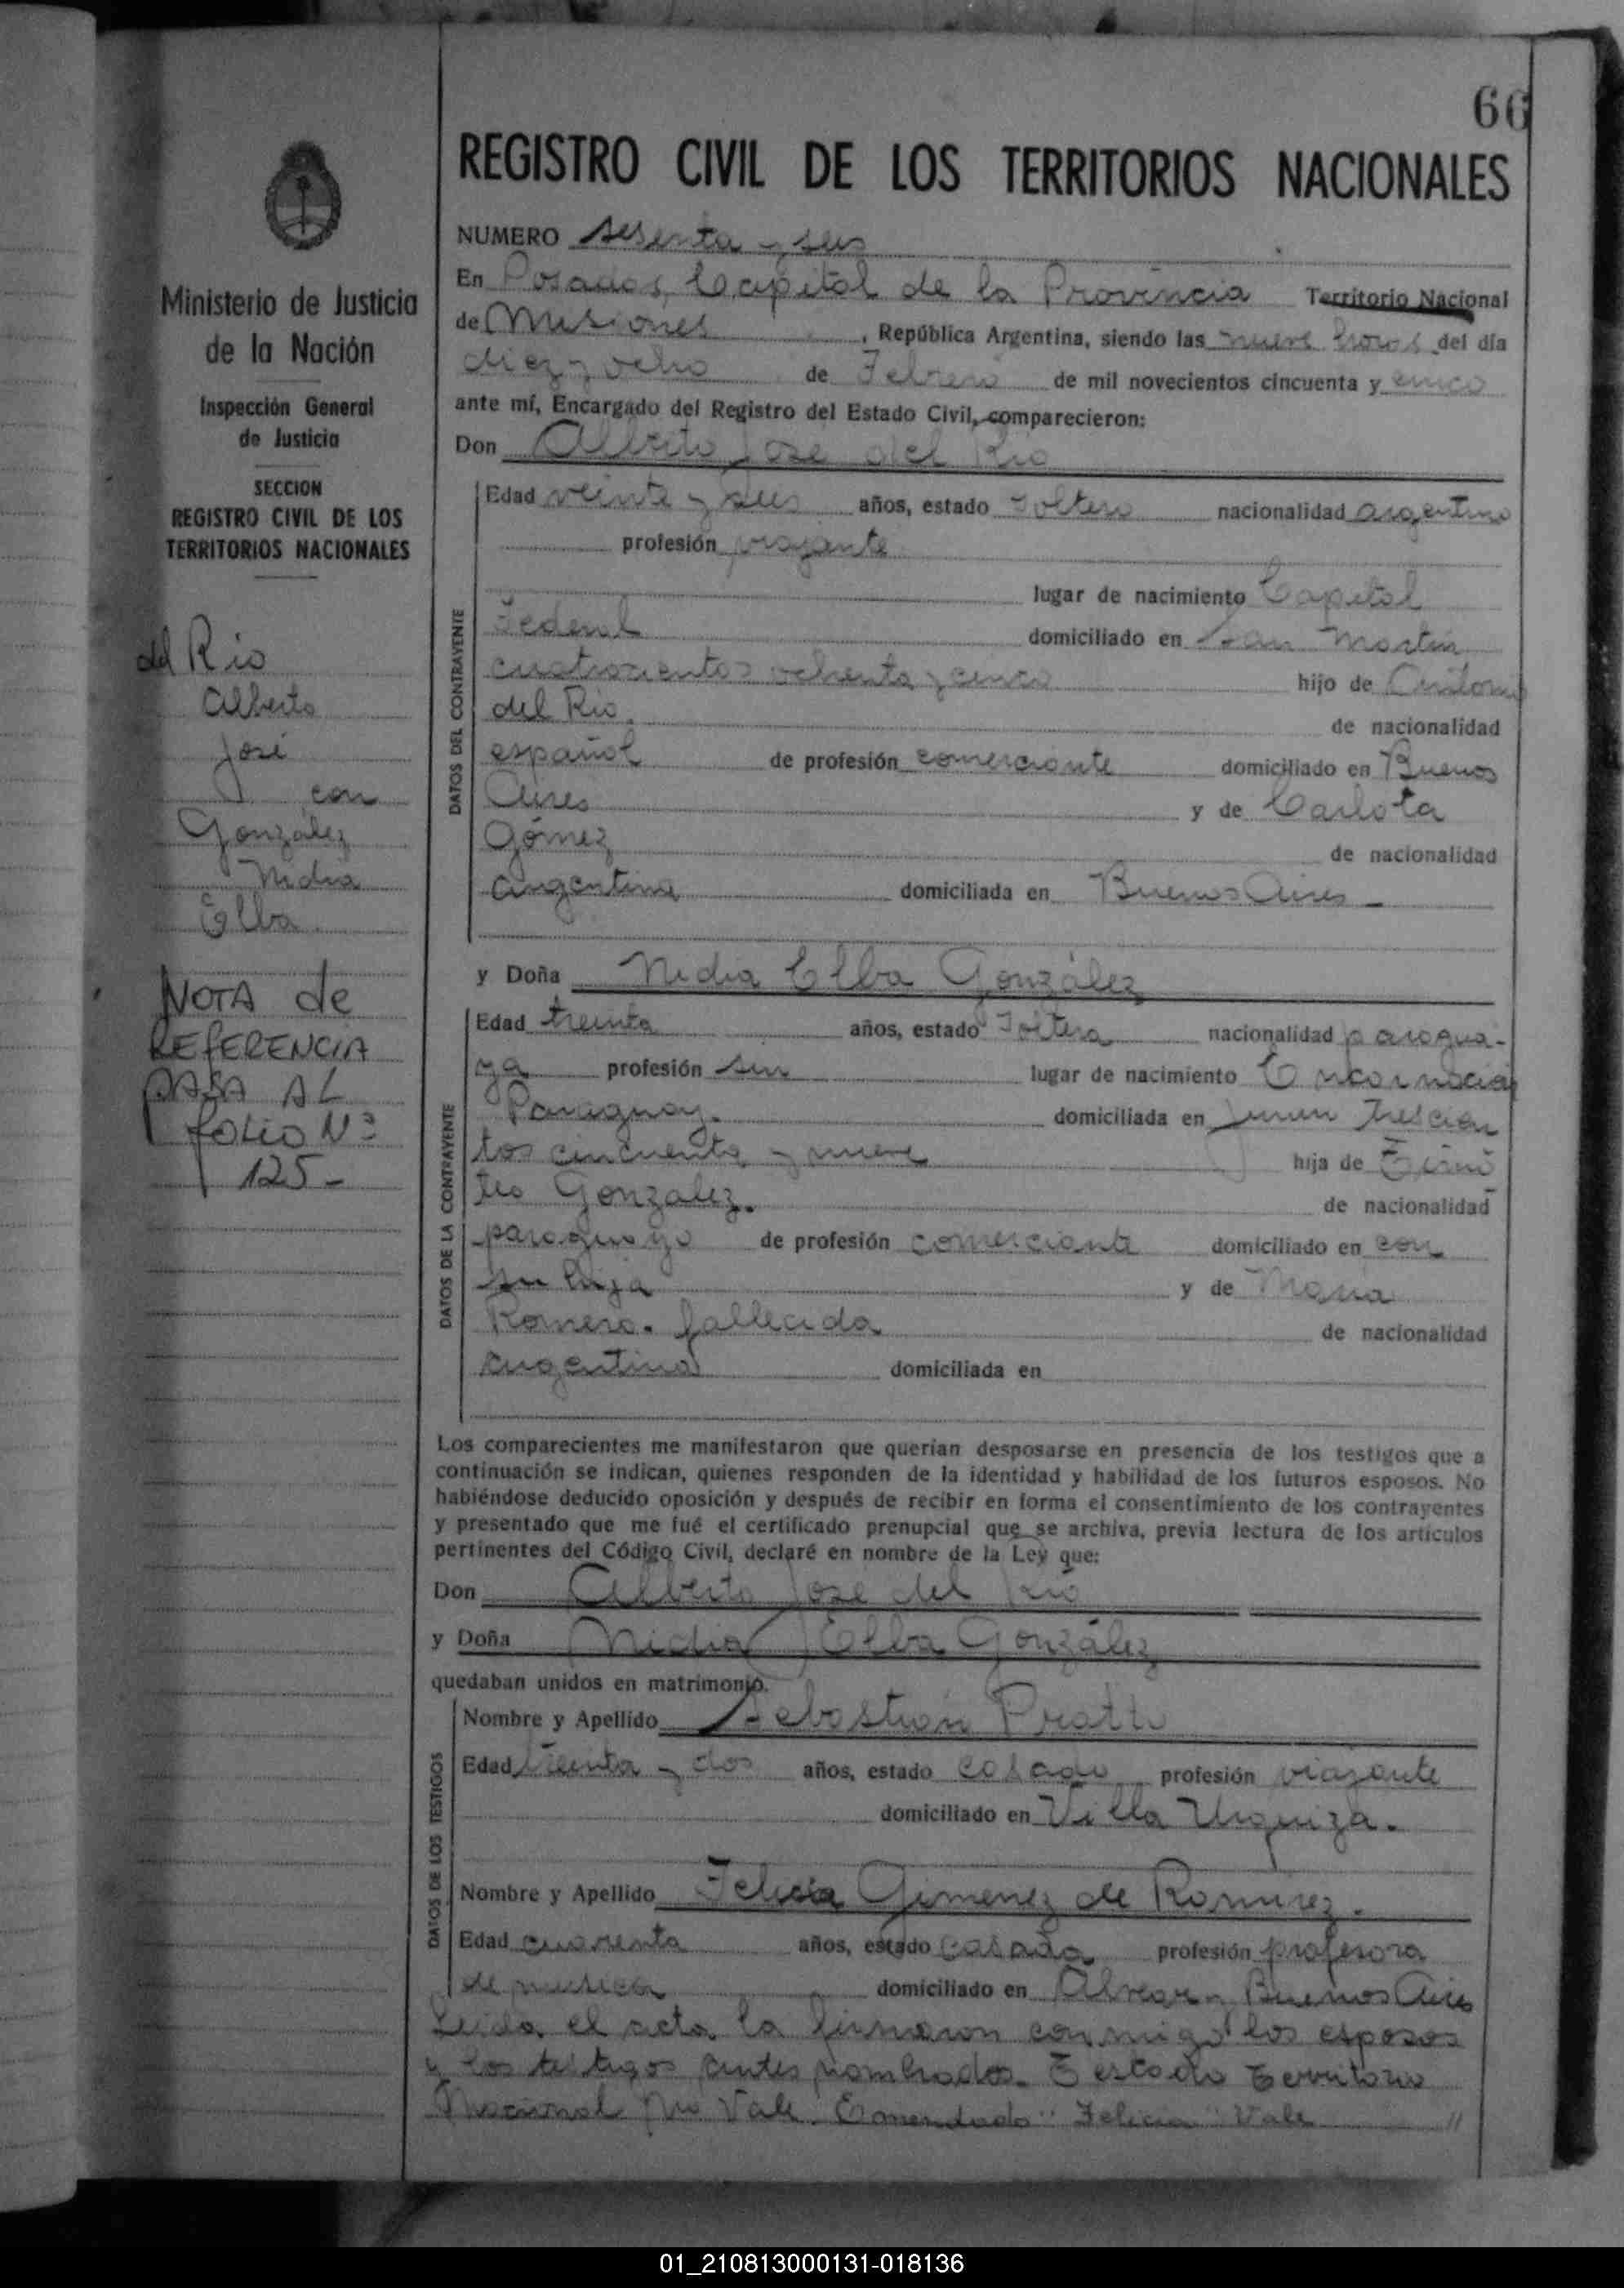 66
REGISTRO CIVIL DE LOS TERRITORIOS NACIONALES
Ministerio de Justicia
de la Nación
Inspección General
de Justicia
SECCION
REGISTRO CIVIL DE LOS
TERRITORIOS NACIONALES
del Rio
Alberto
José
con
González
Nidia
Elba
NOTA de
REFERENCIA
PASA AL
folio Nº
125-
NUMERO sesenta y seis
En Posadas, Capital de la Provincia Territorio Nacional
de Misiones, República Argentina, siendo las nueve horas del día
diez y ocho de Febrero de mil novecientos cincuenta y cinco
ante mí, Encargado del Registro del Estado Civil, comparecieron:
Don Alberto José del Rio
DATOS DEL CONTRAYENTE
Edad veinte y seis años, estado soltero nacionalidad argentino
profesión viajante
lugar de nacimiento Capital
Federal domiciliado en San Martín
cuatrocientos ochenta y cinco hijo de Antonio
del Rio. de nacionalidad
español de profesión comerciante domiciliado en Buenos
Aires y de Carlota
Gómez de nacionalidad
argentina domiciliada en Buenos Aires -
y Doña Nidia Elba González
DATOS DE LA CONTRAYENTE
Edad treinta años, estado soltera nacionalidad paragua-
ya profesión sin lugar de nacimiento Encarnación
Paraguay. domiciliada en Junin trescien
tos cincuenta y nueve hija de
teo González. de nacionalidad
paraguayo de profesión comerciante domiciliado en con
su hija y de María
Romero. fallecida de nacionalidad
argentina domiciliada en
Los comparecientes me manifestaron que querían desposarse en presencia de los testigos que a
continuación se indican, quienes responden de la identidad y habilidad de los futuros esposos. No
habiéndose deducido oposición y después de recibir en forma el consentimiento de los contrayentes
y presentado que me fué el certificado prenupcial que se archiva, previa lectura de los artículos
pertinentes del Código Civil, declaré en nombre de la Ley que:
Don Alberto José del Rio
y Doña Nidia Elba González
quedaban unidos en matrimonio.
DATOS DE LOS TESTIGOS
Nombre y Apellido Sebastián Pratto
Edad treinta y dos años, estado casado profesión viajante
domiciliado en Villa Urquiza.
Nombre y Apellido Felicia Gimenez de Ramirez.
Edad cuarenta años, estado casada profesión profesora
de musica domiciliado en Alvear y Buenos Aires
Leida el acta la firmaron conmigo los esposos
y los testigos antes nombrados. Testado Territorio
Nacional No Vale. Enmendado "Felicia" Vale "
01_210813000131-018136